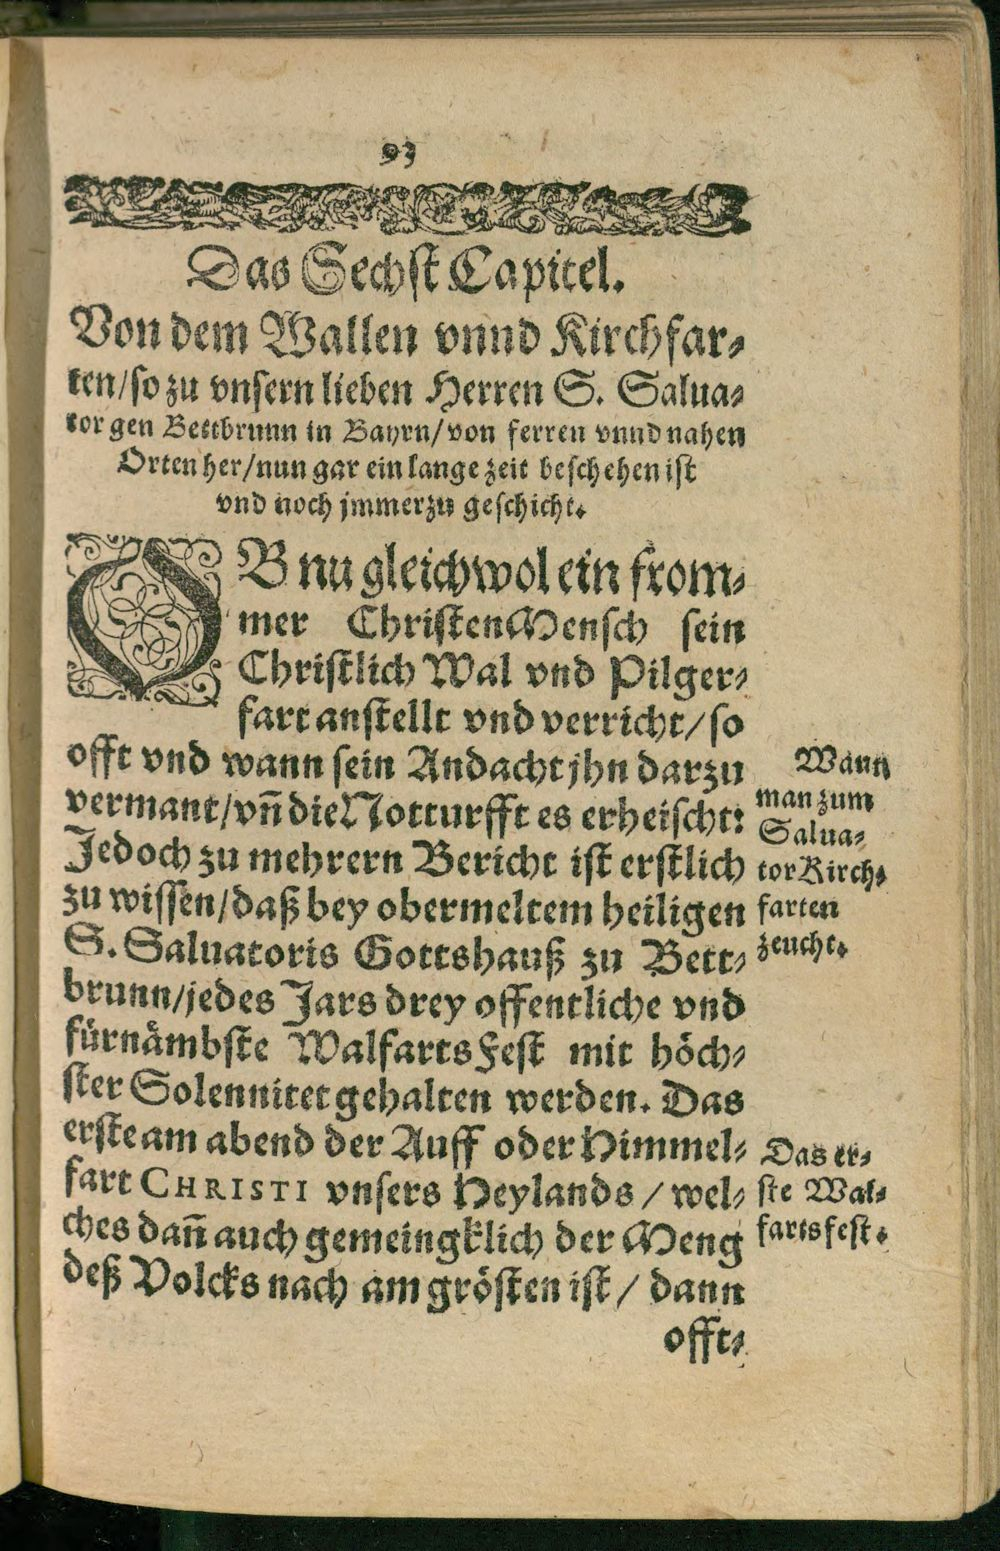 93
Das Sechst Capitel.
Von dem Wallen vnnd Kirchfar⸗
ten/so zu vnsern lieben Herren S. Salua⸗
tor gen Bettbrunn in Bayrn/von ferren vnnd nahen
Orten her/nun gar ein lange zeit beschehen ist
vnd noch jmmerzu geschicht.
OB nu gleichwol ein from⸗
mer ChristenMensch sein
Christlich Wal vnd Pilger⸗
fart anstellt vnd verricht/so
offt vnd wann sein Andacht jhn darzu
vermant/vñ die Notturfft es erheischt:
Jedoch zu mehrern Bericht ist erstlich
zu wissen/daß bey obermeltem heiligen
S. Saluatoris Gottshauß zu Bett⸗
brunn/jedes Jars drey offentliche vnd
fürnämbste WalfartsFest mit höch⸗
ster Solennitet gehalten werden. Das
erste am abend der Auff oder Himmel⸗
fart CHRISTI vnsers Heylands / wel⸗
ches dañ auch gemeingklich der Meng
deß Volcks nach am grösten ist / dann
offt⸗
Wann
man zum
Salua⸗
torKirch⸗
farten
zeucht.
Das er⸗
ste Wal⸗
fartsfest.